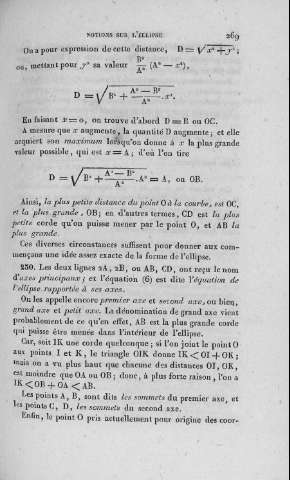 NOTIONS SUR L'ELLIPSE 269
On a pour expression de cette distance, D = √x² + y² ;
ou, mettant pour y² sa valeur B²/A² (A² — x²),
D = √B² + (A² — B²)/A² . x².
En faisant x = 0, on trouve d'abord D = B ou OC.
A mesure que x augmente, la quantité D augmente ; et elle
acquiert son maximum lorsqu'on donne à x la plus grande
valeur possible, qui est x = A ; d'où l'on tire
D = √B² + (A² — B²)/A² . A² = A, ou OB.
Ainsi, la plus petite distance du point O à la courbe, est OC,
et la plus grande, OB ; en d'autres termes, CD est la plus
petite corde qu'on puisse mener par le point O, et AB la
plus grande.
Ces diverses circonstances suffisent pour donner aux com-
mençans une idée assez exacte de la forme de l'ellipse.
250. Les deux lignes 2A, 2B, ou AB, CD, ont reçu le nom
d'axes principaux ; et l'équation (6) est dite l'équation de
l'ellipse rapportée à ses axes.
On les appelle encore premier axe et second axe, ou bien,
grand axe et petit axe. La dénomination de grand axe vient
probablement de ce qu'en effet, AB est la plus grande corde
qui puisse être menée dans l'intérieur de l'ellipse.
Car, soit IK une corde quelconque ; si l'on joint le point O
aux points I et K, le triangle OIK donne IK < OI + OK ;
mais on a vu plus haut que chacune des distances OI, OK,
est moindre que OA ou OB ; donc, à plus forte raison, l'on a
IK < OB + OA < AB.
Les points A, B, sont dits les sommets du premier axe, et
les points C, D, les sommets du second axe.
Enfin, le point O pris actuellement pour origine des coor-